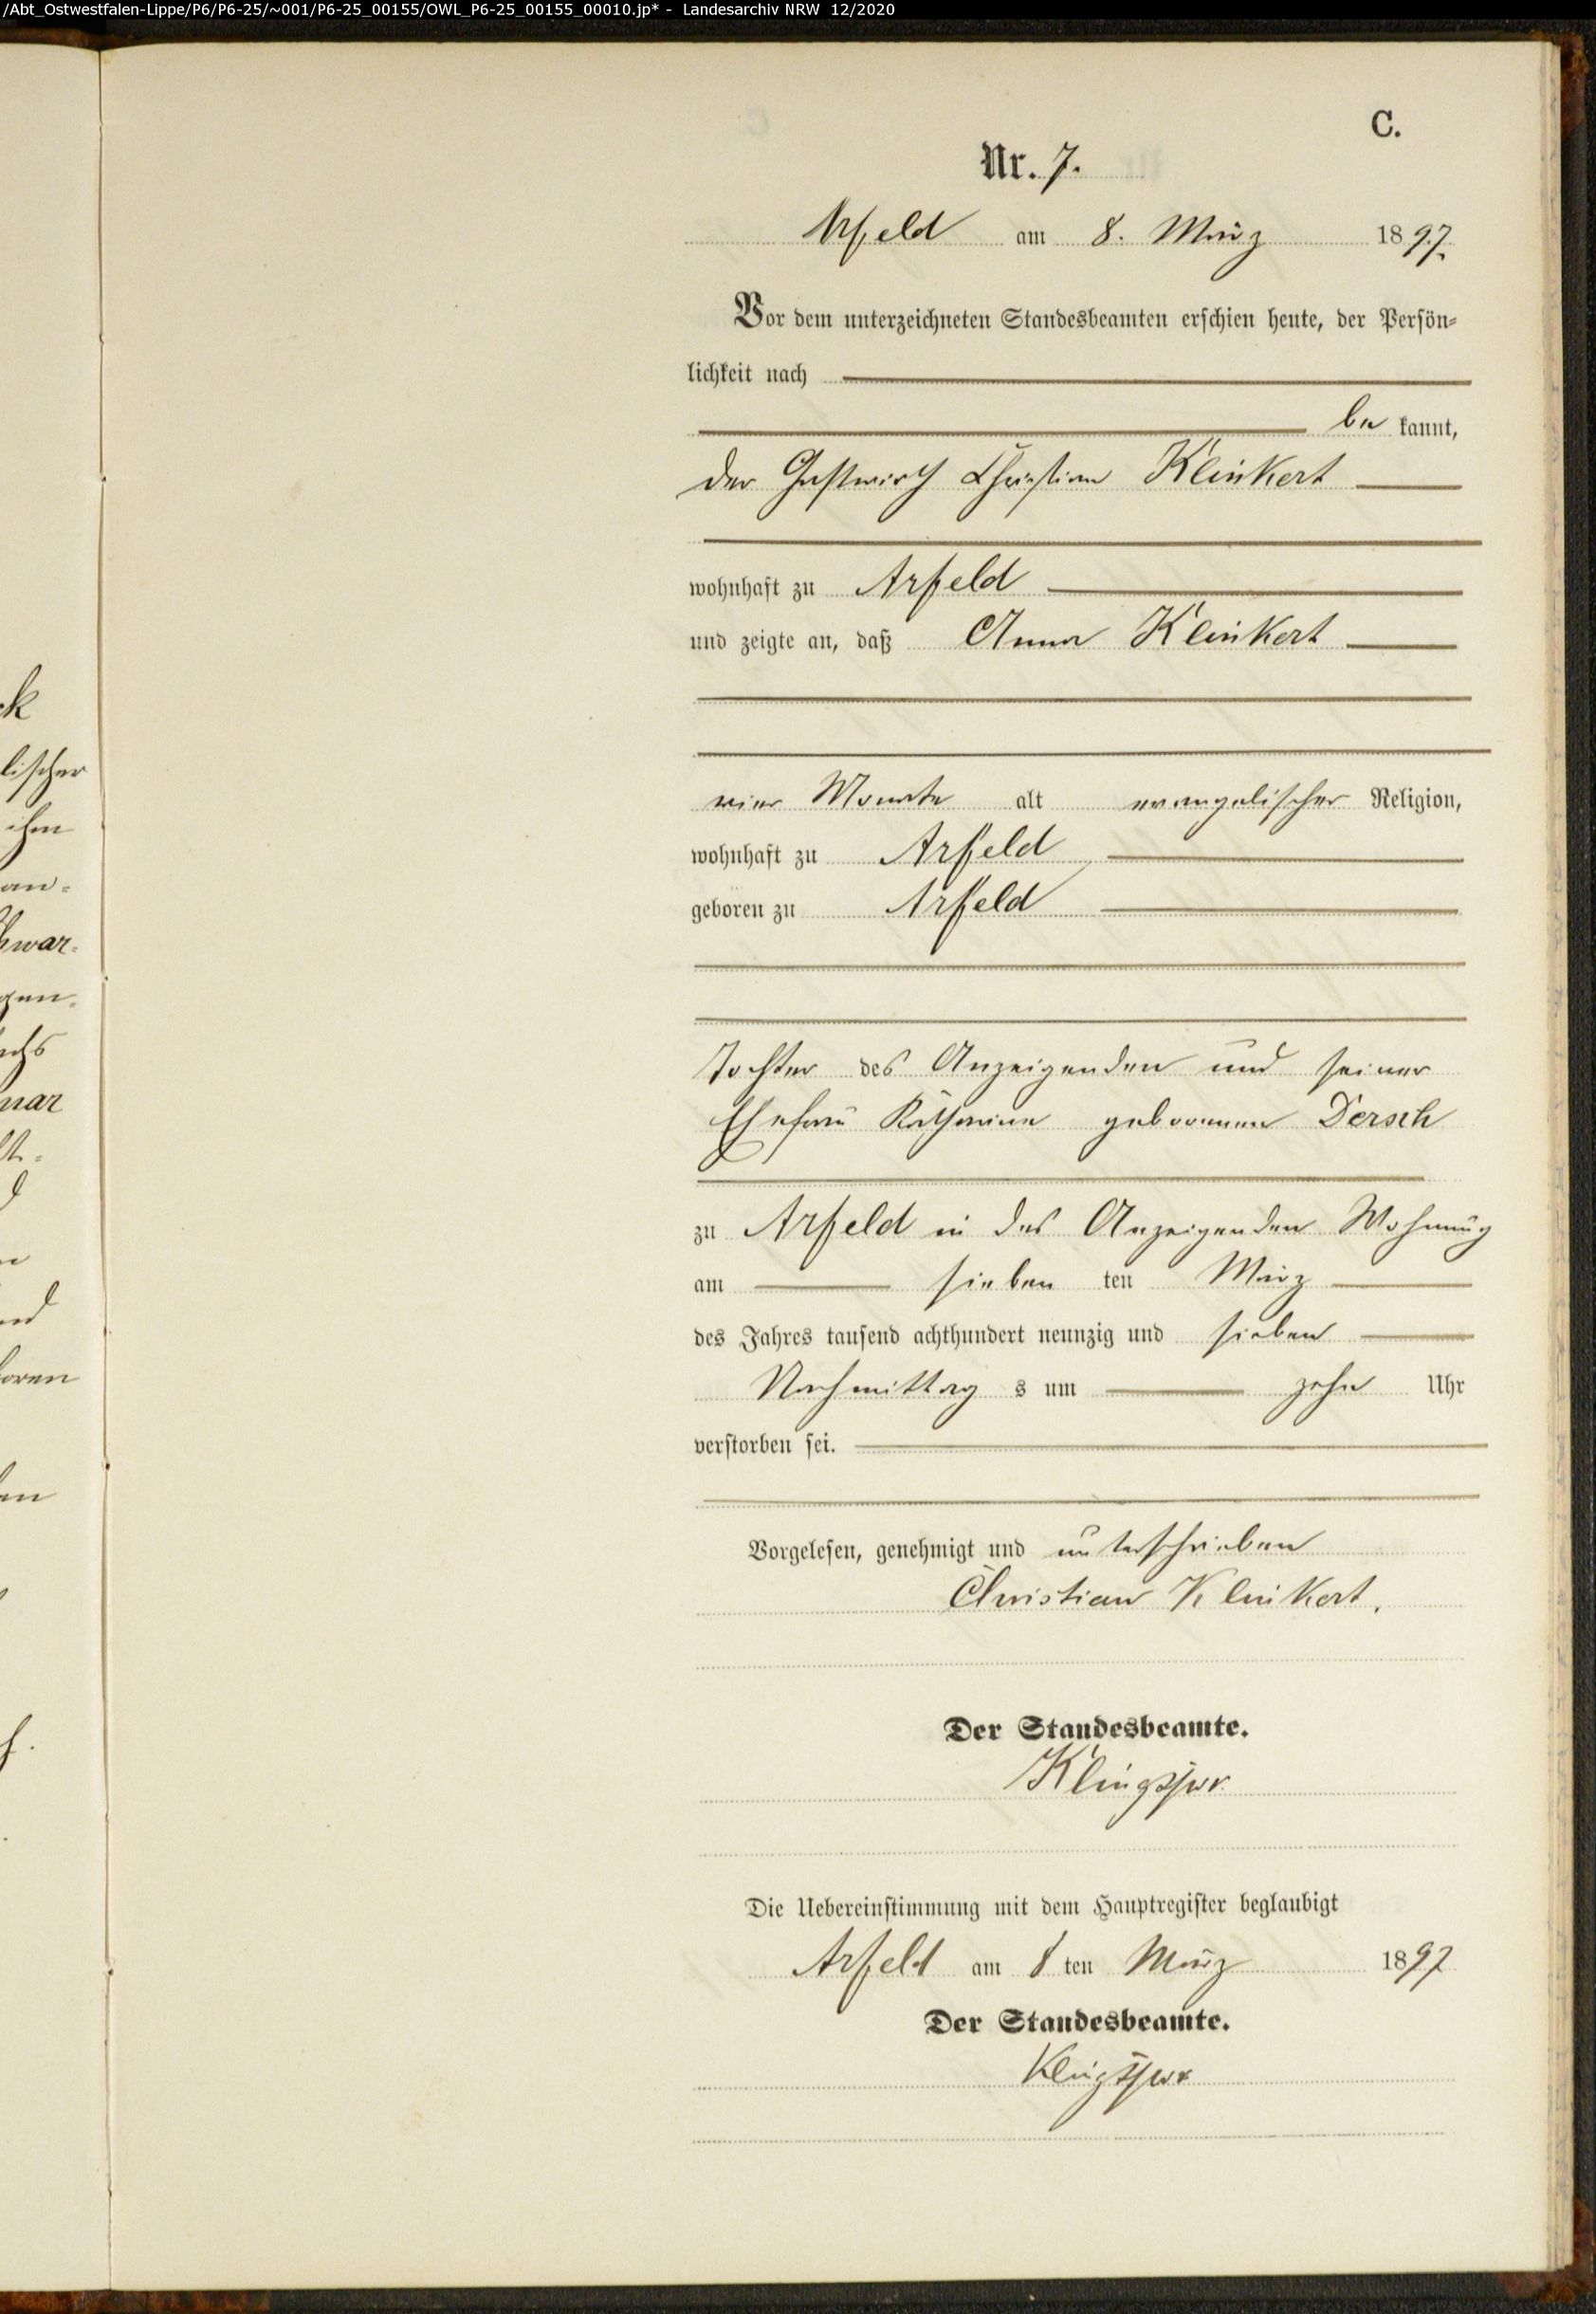 /Abt_Ostwestfalen-Lippe/P6/P6-25/~001/P6-25_00155/OWL_P6-25_00155_00010.jp* - Landesarchiv NRW 12/2020
C.
Nr. 7.
Arfeld am 8. März 1897.
Vor dem unterzeichneten Standesbeamten erschien heute, der Persön-
lichkeit nach
be kannt,
der Gastwirth Christian Klinkert
wohnhaft zu Arfeld
und zeigte an, daß Anna Klinkert
vier Monate alt evangelischer Religion,
wohnhaft zu Arfeld
geboren zu Arfeld
Tochter des Anzeigenden und seiner
Ehefrau Katharine geborenen Dersch
zu Arfeld in des Anzeigenden Wohnung
am sieben ten März
des Jahres tausend achthundert neunzig und sieben
Nachmittag s um zehn Uhr
verstorben sei.
Vorgelesen, genehmigt und unterschrieben
Christian Klinkert.
Der Standesbeamte.
Klingspor
Die Uebereinstimmung mit dem Hauptregister beglaubigt
Arfeld am 8 ten März 1897
Der Standesbeamte.
Klingspor
ck
lischer
ihm
an-
hwar-
gen.
chs
uar
nd
oren
en